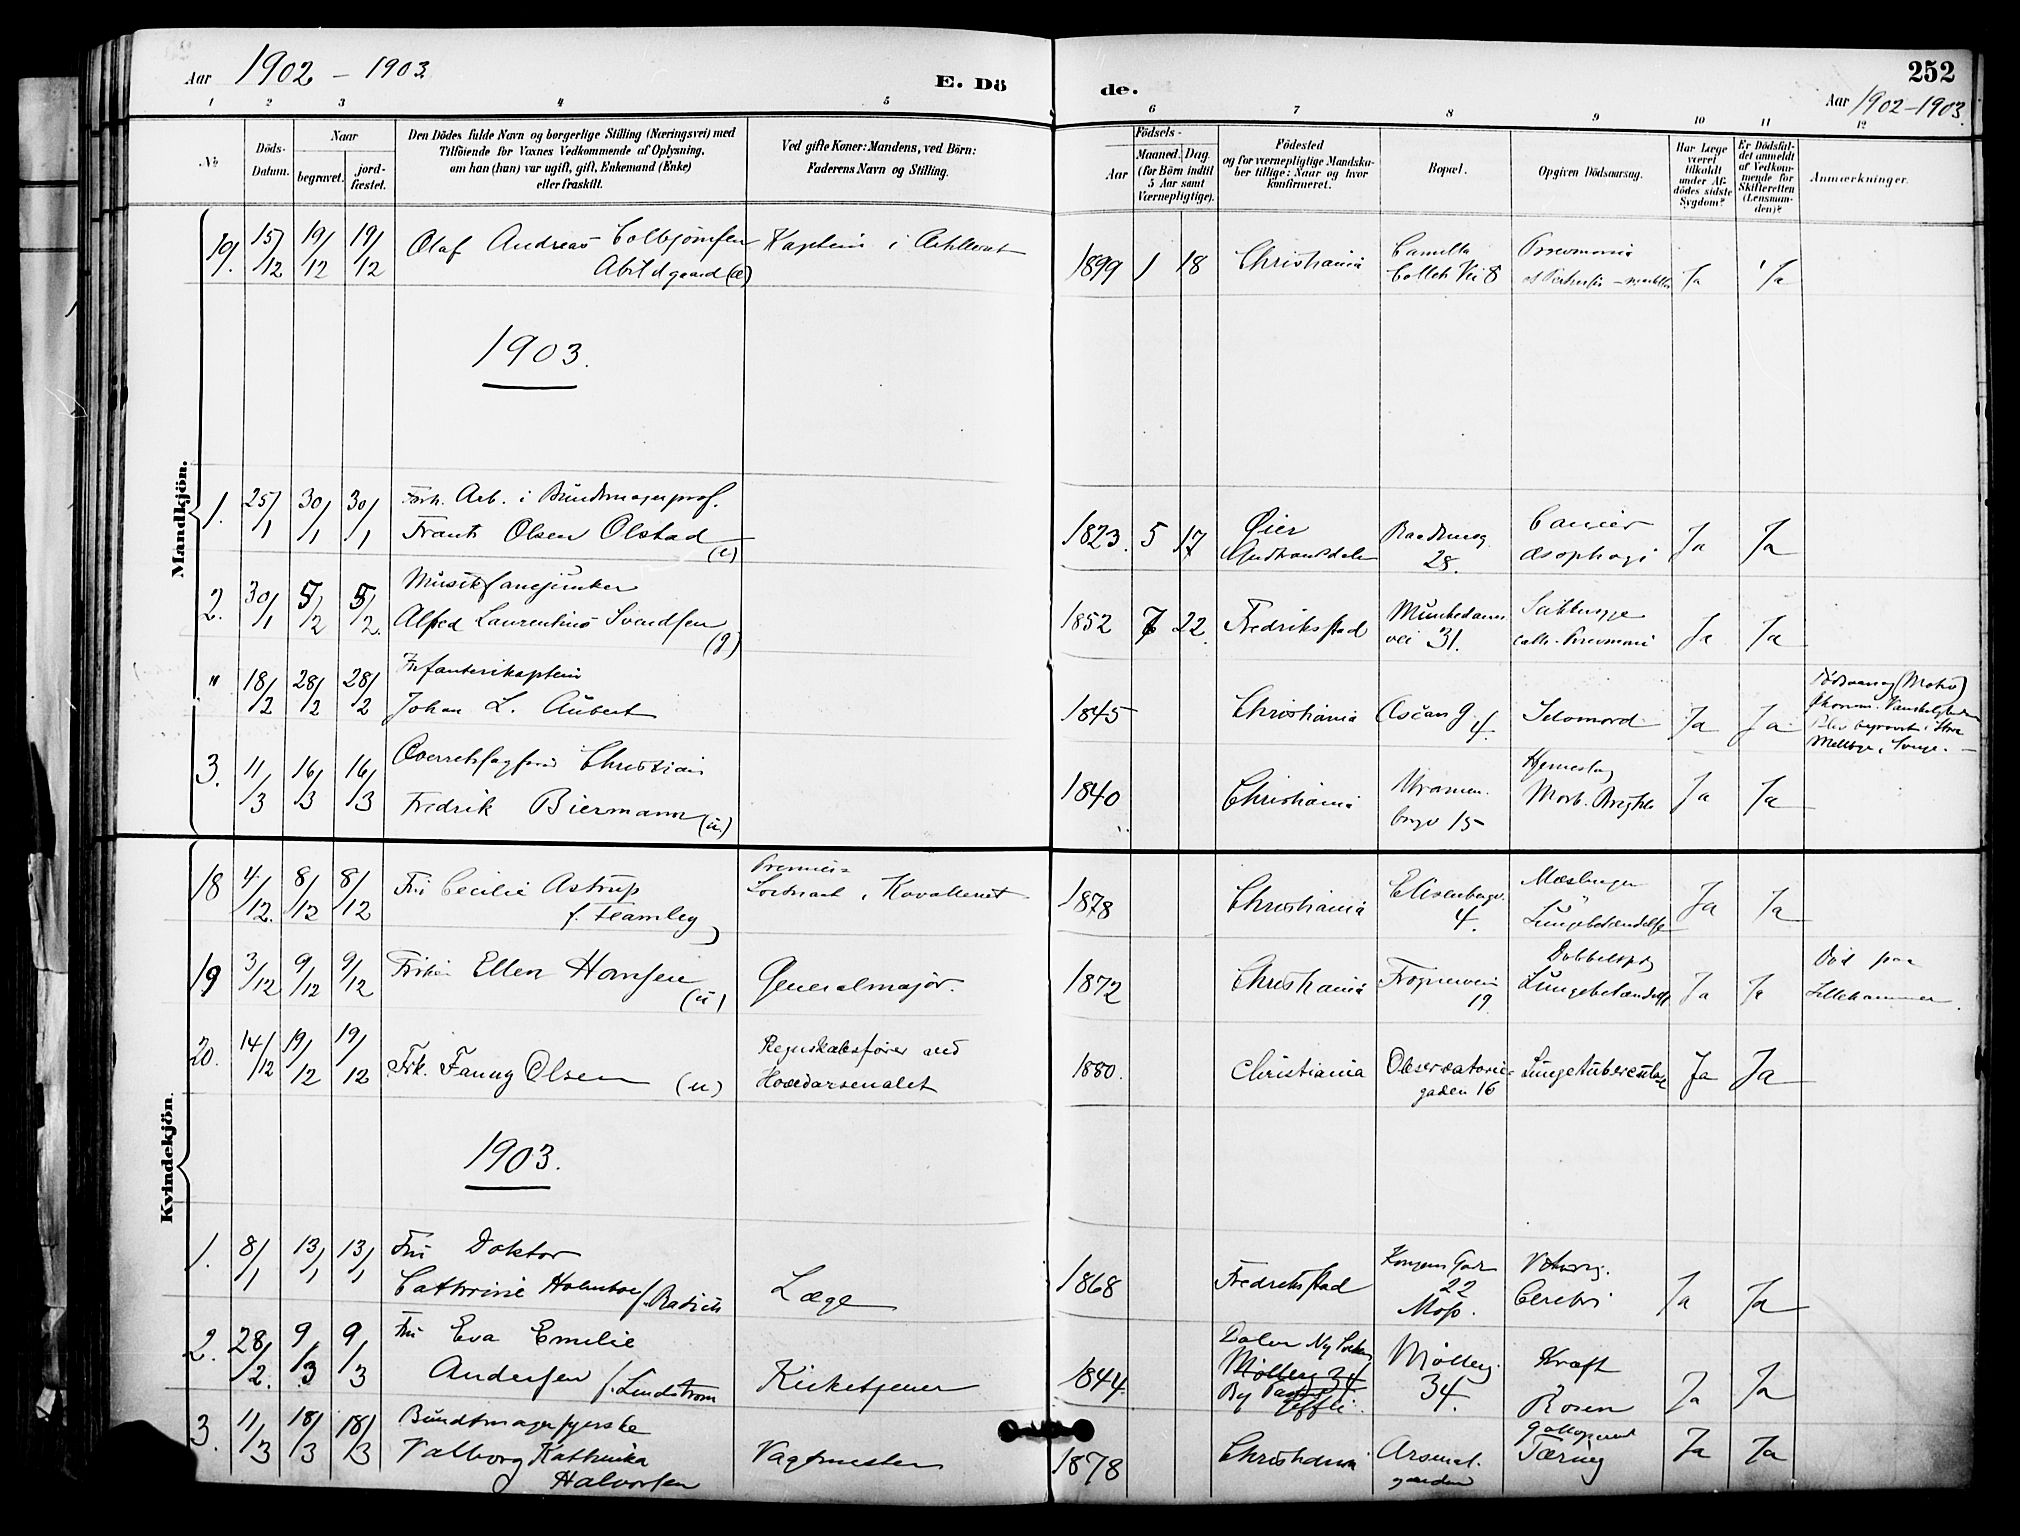 Aar 1902 – 1903.
E. Dö
de.
252
Aar 1902–1903.
1 2 3 4 5
6 7 8 9 10 11 12
№
Döds-
Datum.
Naar
begravet.
jord-
fæstet.
Den Dödes fulde Navn og borgerlige Stilling (Næringsvei) med
Tilföiende for Voxnes Vedkommende af Oplysning,
om han (hun) var ugift, gift, Enkemand (Enke)
eller fraskilt.
Ved gifte Koner: Mandens, ved Börn:
Faderens Navn og Stilling.
Födsels-
Aar
Maaned. Dag
(for Börn indtil
5 Aar samt
Værnepligtige).
Födested
og for værnepligtige Mandska-
ber tillige: Naar og hvor
konfirmeret.
Bopæl.
Opgiven Dödsaarsag.
Har Læge
været
tilkaldt
under Af-
dödes sidste
Sygdom?
Er Dödsfal-
det anmeldt
af Vedkom-
mende for
Skifteretten
(Lensman-
den)?
Anmærkninger.
Mandkjön.
19. 15/12 19/12 19/12 Olaf Andreas Colbjørnsen
Abildgaard
Kaptein i Artilleriet
1899 1 18 Christiania
Camilla
Colletts Vei 8
Pneumonia
Ja Ja
1903.
1. 25/1 30/1 30/1 Forh. Arb. i Bundtmagerprof.
Frants Olsen Olstad
1823. 5 17 Øier
Gudbrandsdalen
Raadhusg.
28.
Cancer
æsophagi
Ja Ja
2. 30/1 5/2 5/2. Musikfanejunker
Alfred Laurentius Svendsen
(g)
1852 7 22. Fredriksstad
Munkedams
vei 31.
Sukkersyge
cath. Pneumoni
Ja Ja
" 18/2 28/2 28/2 Infanterikaptein
Johan L. Aubert
1845 Christiania
Oscars g 4.
Selvmord
Ja Ja
Dødsaarsag (Motiv)
Økonom. Vanskeligheder
Blev begravet i Store
3. 11/3 16/3 16/3 Overretssagfører Christian
Fredrik Biermann (u)
1840 Christiania
Uranien-
borgv 15
Hjerneslag
Morb. Brightii
Ja Ja
Kvindekjön.
18 4/12. 8/12 8/12 Fru Cecilie Astrup
f. Fearnley
Premier-
Løitnant i Kavalleriet
1878 Christiania
Elisenbergv.
4.
Mæslinger
Lungebetændelse
Ja Ja
19 3/12 9/12 9/12 Frøken Ellen Hansen
(u)
Generalmajor.
1872 Christiania
Frognerveien
19.
Dobbeltsidig
Lungebetændelse
Ja Ja
Død paa
Lillehammer.
20. 14/12 19/12 19/12 Frk. Fanny Olsen (u)
Regnskabsfører ved
Hovedarsenalet
1880. Christiania
Observatorie-
gaden 16
Lungetuberculose
Ja Ja
1903.
1. 8/1 13/1 13/1 Fru Doktor
Cathrine Holmboe f. Radich
Læge
1868 Fredriksstad
Kongens Gade
22
Moss.
Cerebri
Ja Ja
2. 28/2. 9/3 9/3 Fru Eva Emilie
Andersen f. Lindstrøm
Kirketjener
1844.
Møllerg 34
Gefle.
Møllerg.
34.
Kræft
Ja Ja
3. 11/3 18/3 18/3 Bundtmagersyerske
Valborg Kathinka
Halvorsen
Vagtmester
1878 Christiania
Arsenal-
gaarden
Rosen
Galloperende
Tæring
Ja Ja